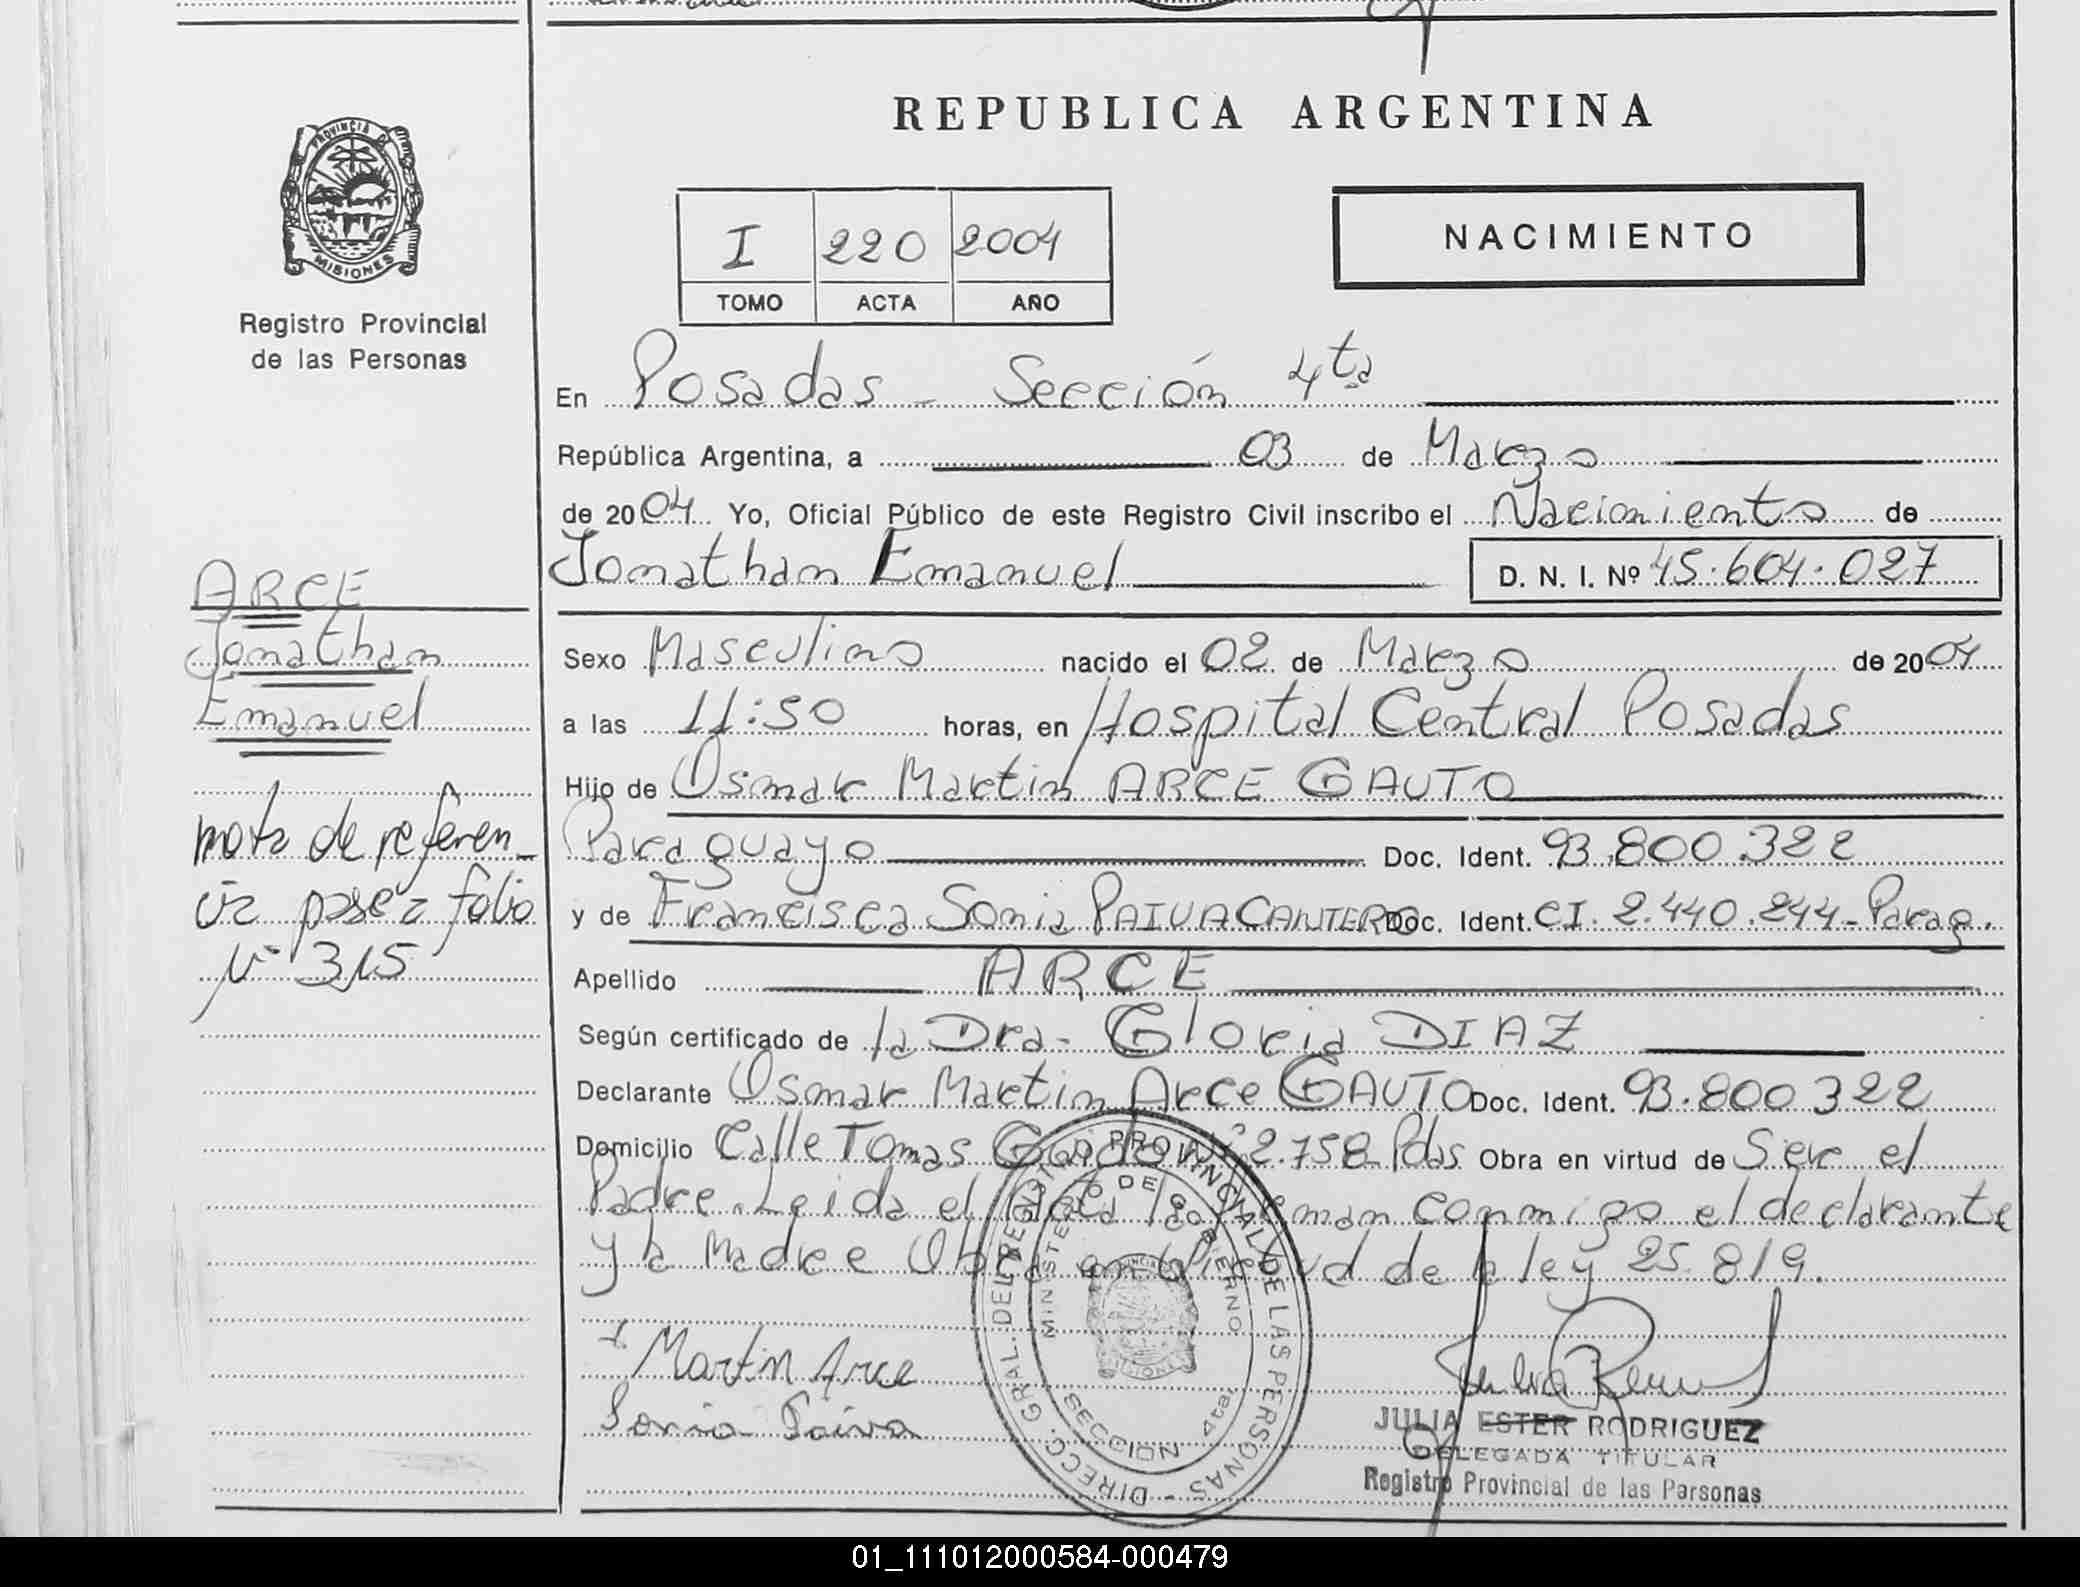 REPUBLICA ARGENTINA
PROVINCIA DE
MISIONES
Registro Provincial
de las Personas
I 220 2004
TOMO ACTA AÑO
NACIMIENTO
En Posadas - Sección 4ta
República Argentina, a 03 de Marzo
de 2004 Yo, Oficial Público de este Registro Civil inscribo el Nacimiento de
Jonathan Emanuel D. N. I. Nº 45.604.027
ARCE
Jonathan
Emanuel
Sexo Masculino nacido el 02 de Marzo de 2004
a las 11:50 horas, en Hospital Central Posadas
Hijo de Osmar Martin ARCE GAUTO
Paraguayo Doc. Ident. 93.800.322
y de Francisca Sonia PAIVA CANTERO Doc. Ident. CI. 2.440.244- Parag.
nota de referen-
cia pase a folio
Nº 315
Apellido ARCE
Según certificado de la Dra- Gloria DIAZ
Declarante Osmar Martin Arce GAUTO Doc. Ident. 93.800 322
Domicilio Calle Tomas Nº 2.758- Pdas Obra en virtud de Ser el
Padre. Leida el Acta la firman conmigo el declarante
y la Madre Obra en virtud de la ley 25.819.
DIRECC. GRAL. DEL REGISTRO PROVINCIAL DE LAS PERSONAS -
MINISTERIO DE GOBIERNO
SECCION 4ta.
Martin Arce
Sonia Paiva
JULIA ESTER RODRIGUEZ
DELEGADA TITULAR
Registro Provincial de las Personas
01_111012000584-000479